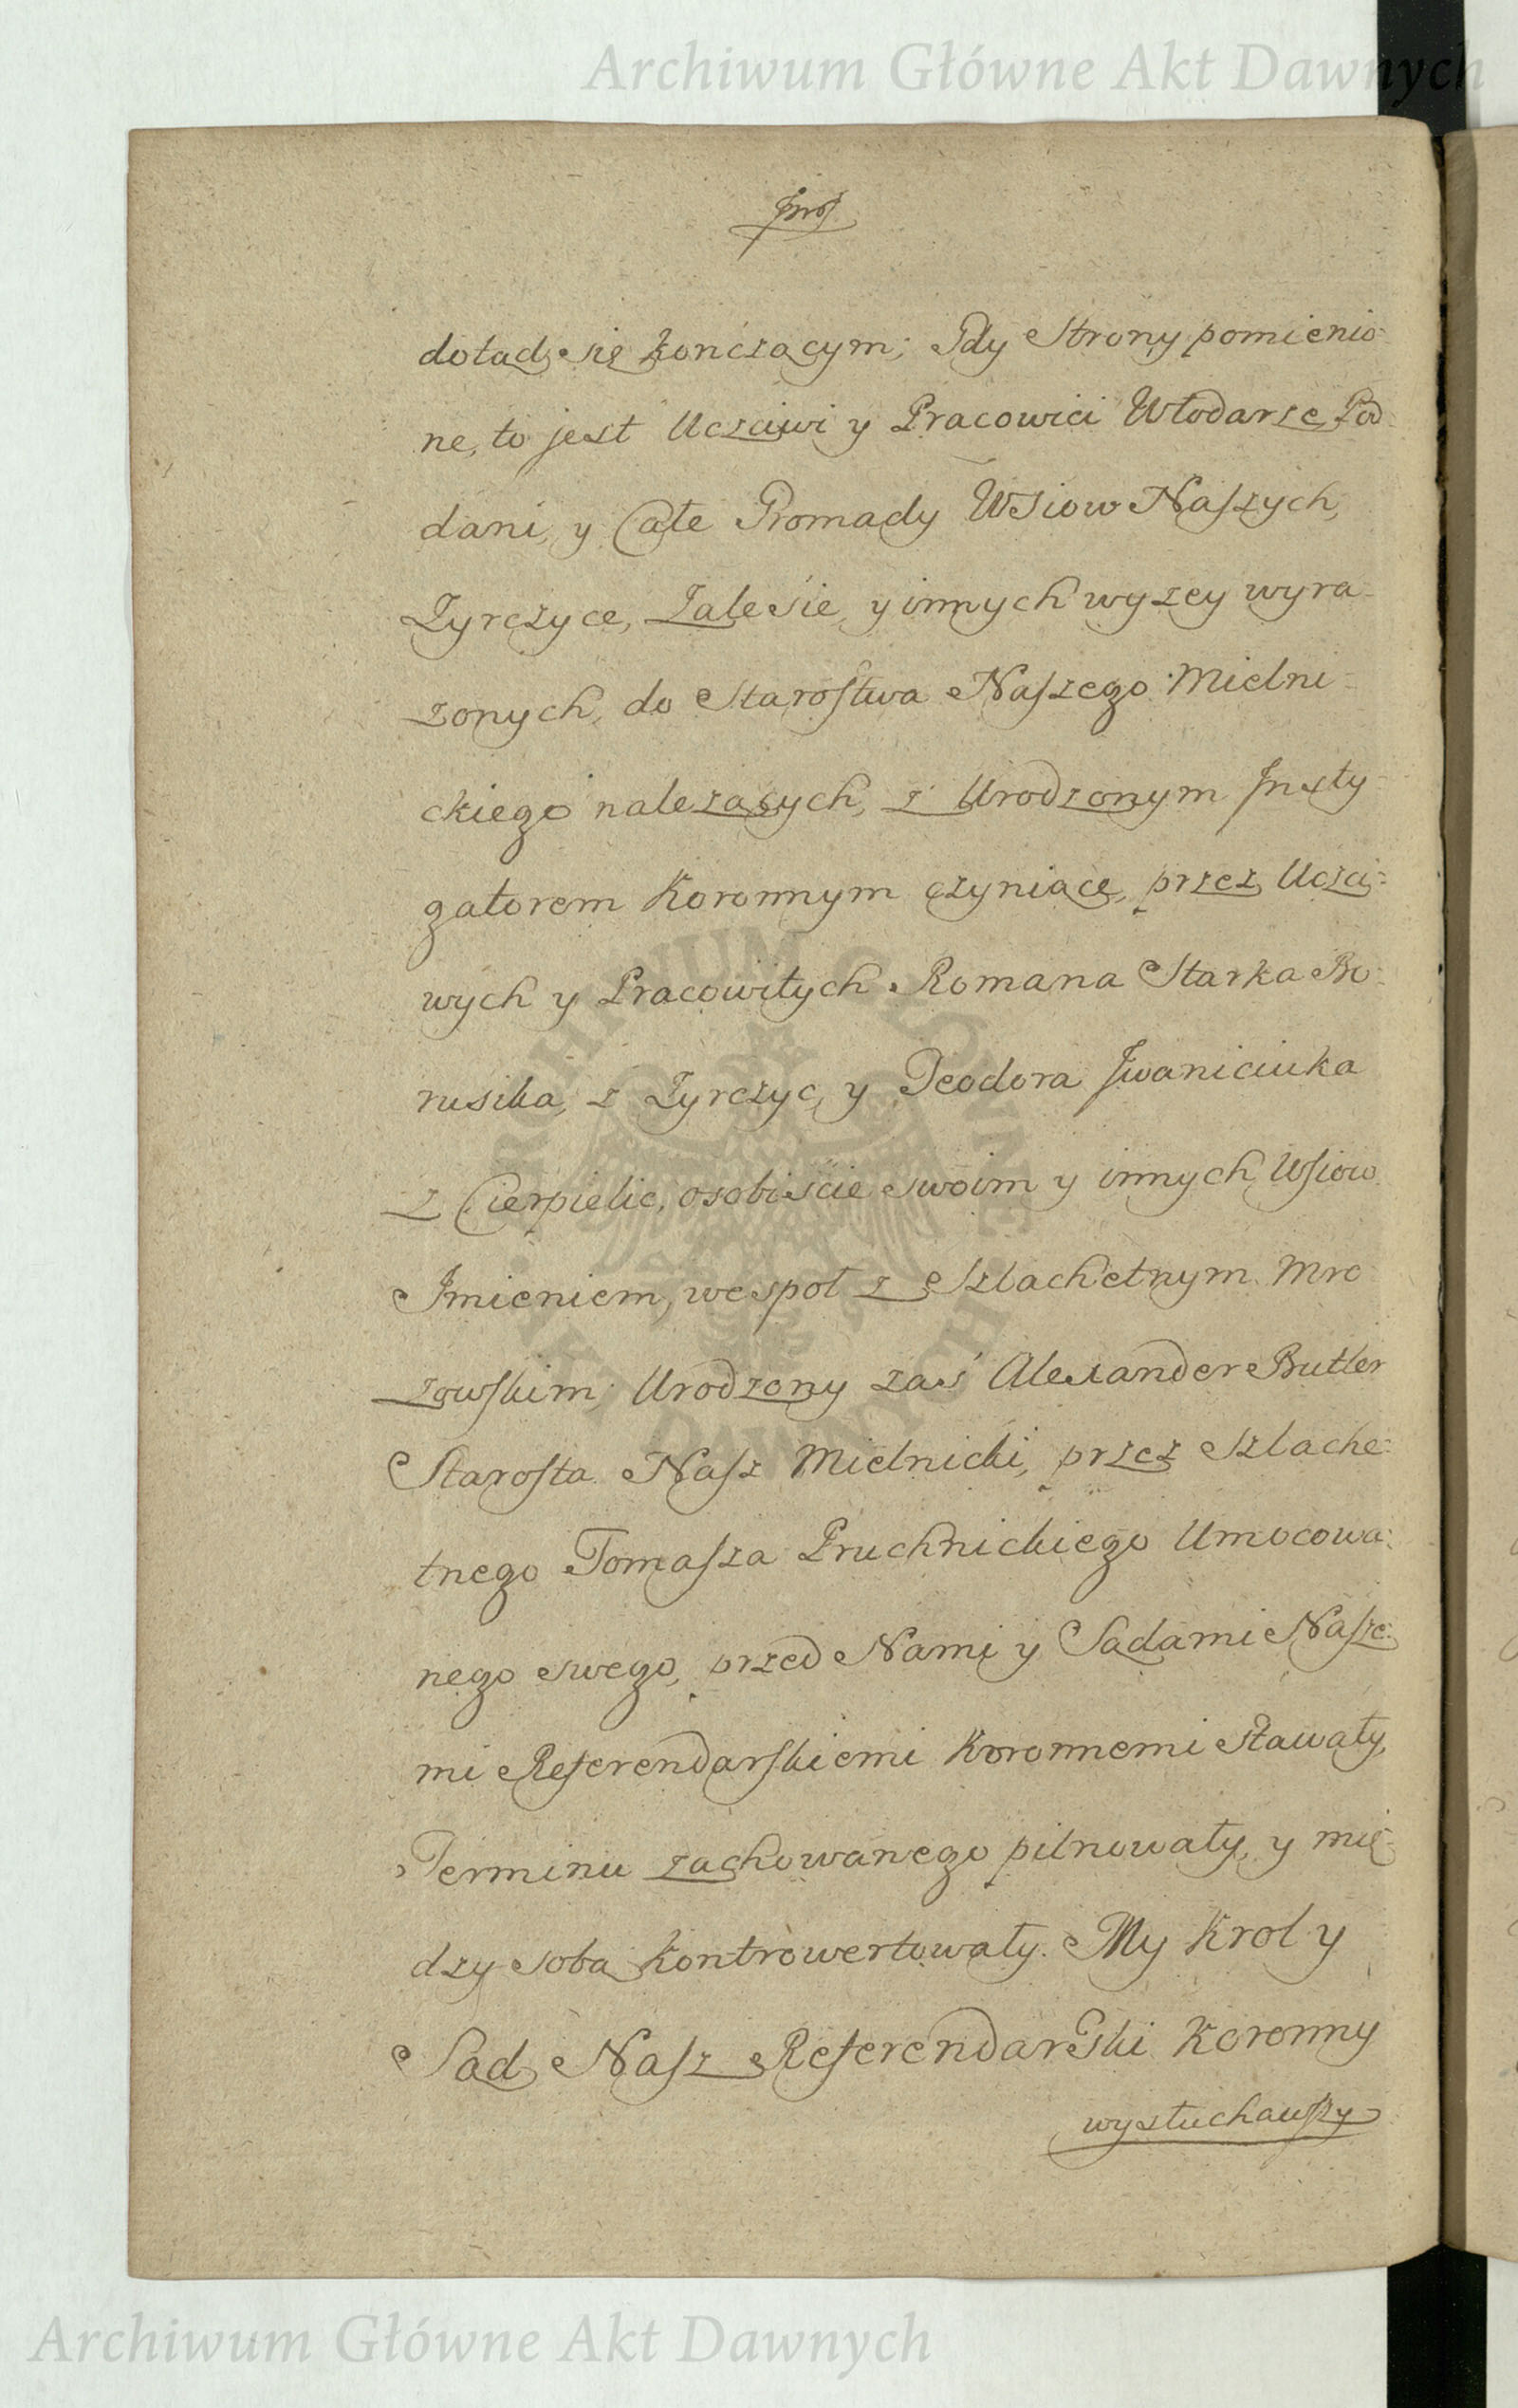 Archiwum Główne Akt Dawnych
dotąd się kończącym; Gdy Strony pomienio=
ne, to jest Uczciwi y Pracowici Włodarze, Pod=
dani, y Całe Gromady Wsiow Naszych,
Zyrczyce, Zalesie, y innych wyzey wyra=
zonych, do Starostwa Naszego Mielni=
ckiego nalezących, z Urodzonym Insty=
gatorem Koronnym czyniące, przez Uczci=
wych y Pracowitych Romana Starka
z Zyrczyc, y Teodora Iwaniciuka
z Cierpielic, osobiście swoim y innych Wsiow
Imieniem, wespoł z Szlachetnym Mro
zowskim; Urodzony zaś Alexander Butler
Starosta Nasz Mielnicki, przez Szlache=
tnego Tomasza Pruchnickiego Umocowa=
nego swego, przed Nami y Sądami Nasze=
mi Referendarskiemi Koronnemi stawały,
Terminu zachowanego pilnowały, y mię=
dzy sobą kontrowertowały. My Krol y
Sąd Nasz Referendarski Koronny
wysłuchawszy
ARCHIWUM GŁÓWNE
AKT DAWNYCH
Archiwum Główne Akt Dawnych